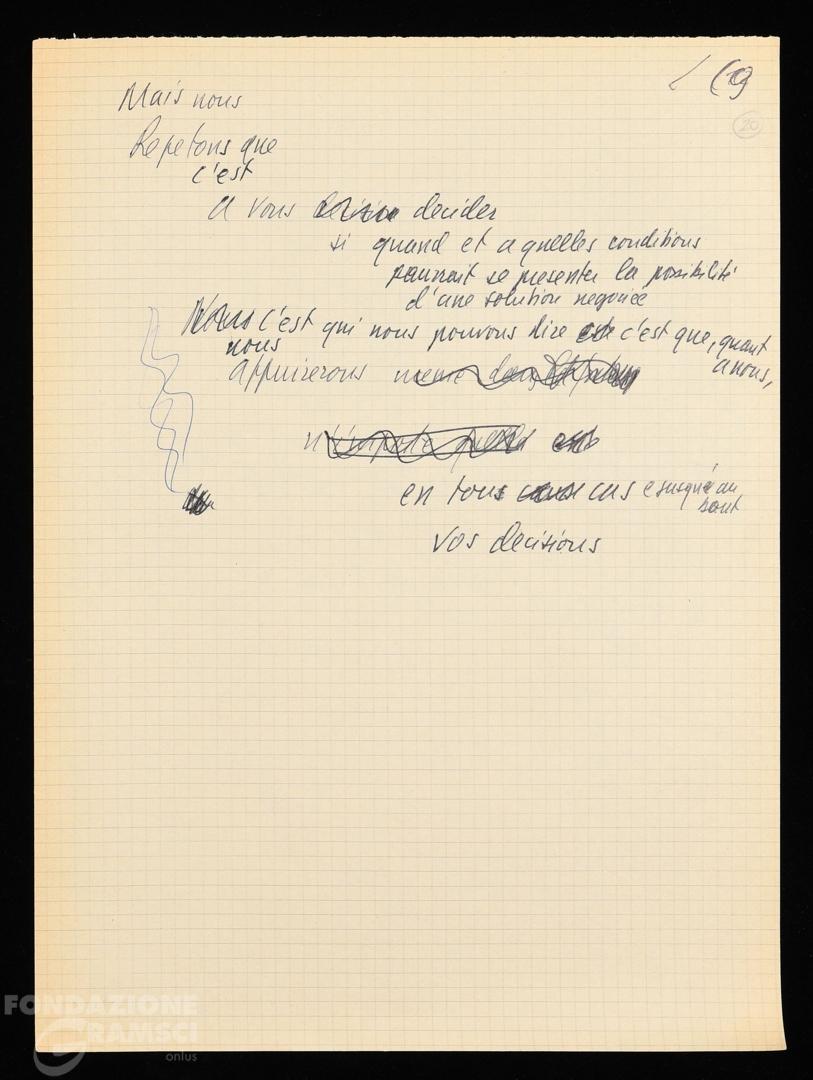 (19
20
Mais nous
Repetons que
c'est
a vous decider
si quand et a quelles conditions
pourrait se presenter la possibilité
d'une solution negociée
Nous c'est qui nous pouvons dire c'est que, quant
nous a nous,
appuierons meme
n'importe
en tous cas e jusqu'é au
bout
vos decisions
FONDAZIONE
GRAMSCI
onlus